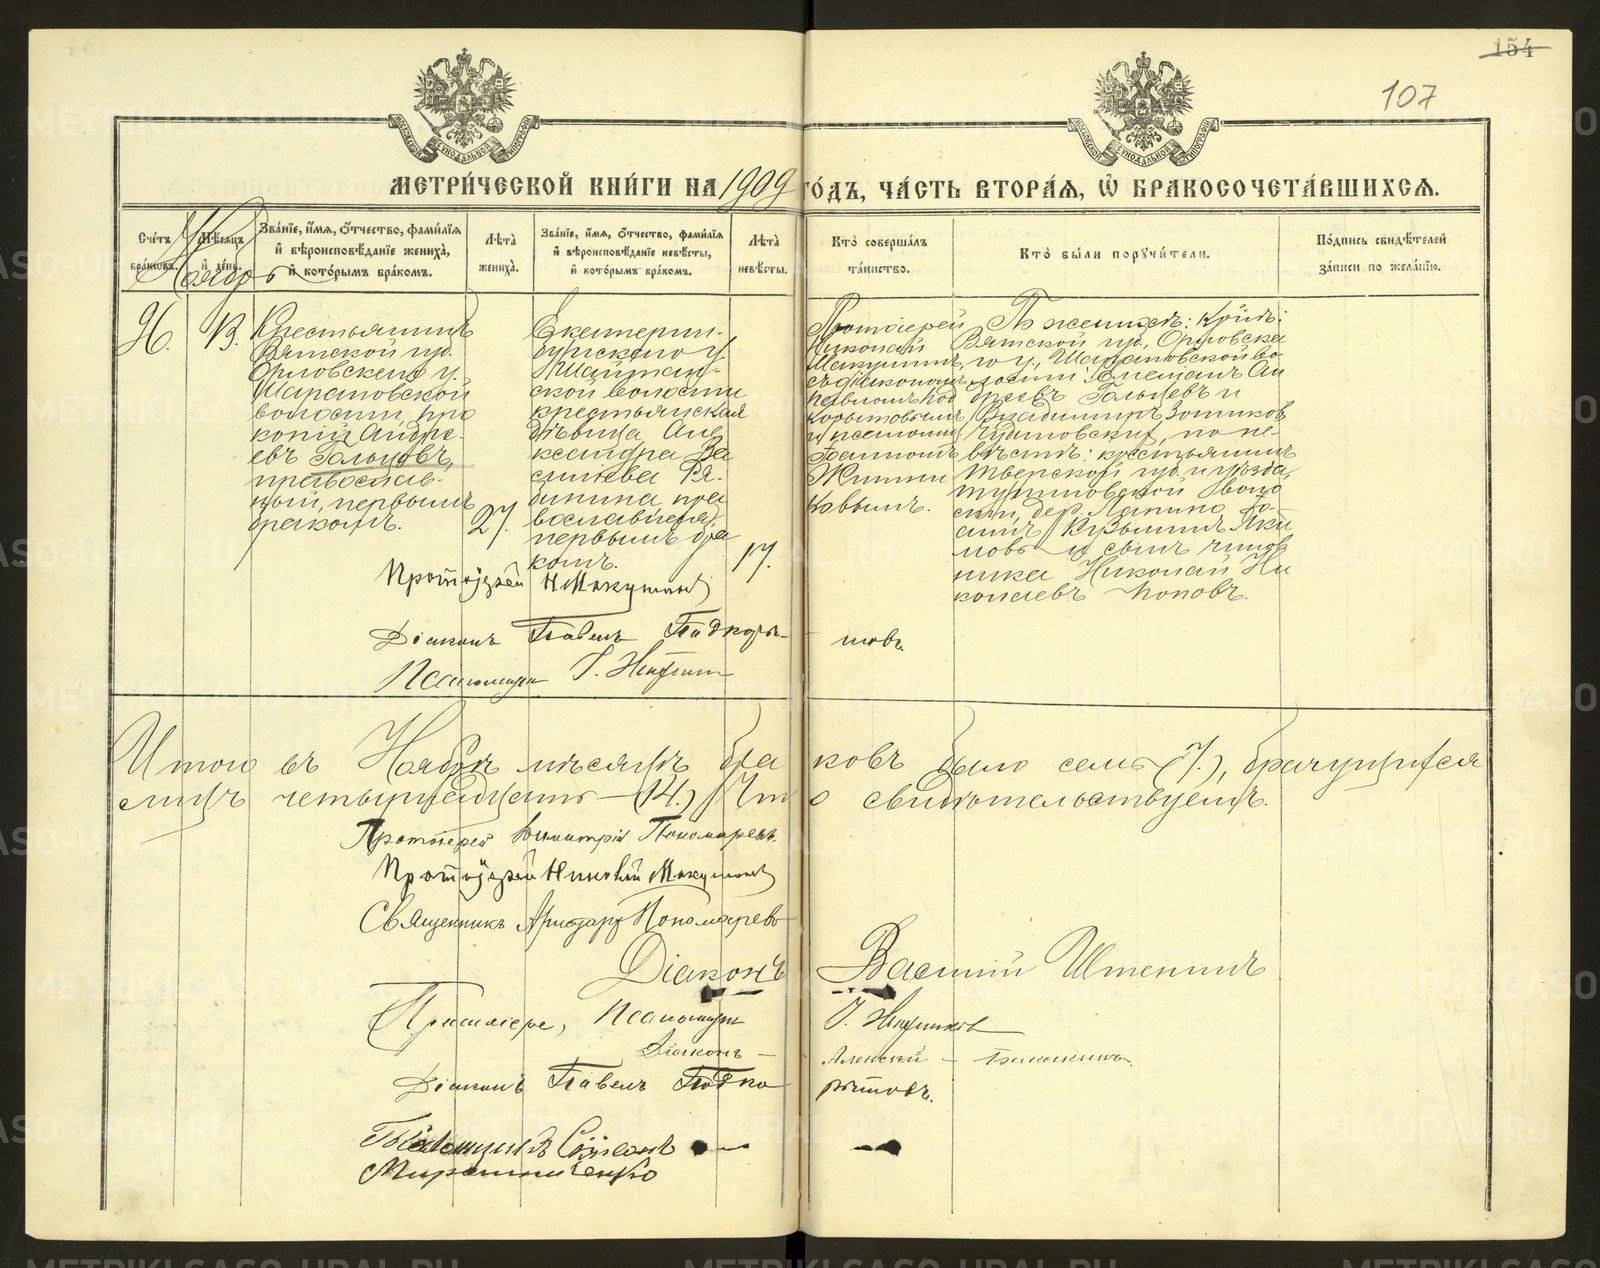 154
107
МЕТРИ́ЧЕСКОЙ КНИ́ГИ НА 1909 ГО́ДЪ, ЧА́СТЬ ВТОРА́Я, Ѡ҆ БРАКОСОЧЕТА́ВШИХСЯ.
Сче́тъ бра́ковъ.
Мѣ́сяцъ и́ де́нь.
Ноябрь
Зва́нїе, и́мя, о́тчество, фами́лїя и́ вѣроисповѣ́данїе жениха̀, и́ кото́рымъ бра́комъ.
Лѣ́та жениха̀.
Зва́нїе, и́мя, о́тчество, фами́лїя и́ вѣроисповѣ́данїе невѣ́сты, и́ кото́рымъ бра́комъ.
Лѣ́та невѣ́сты.
Кто̀ соверша́лъ та́инство.
Кто̀ бы́ли поручи́тели.
По́дпись свидѣ́телей за́писи по жела́нїю.
13.
Крестьянинъ
Вятской губ.
Орловскаго у.
Шарановской
волости, Про
копій Андре-
евъ Гольцовъ,
православ-
ный, первымъ
бракомъ.
27.
Екатерин-
бургскаго у.
Шайтан-
ской волости
крестьянская
дѣвица Але
ксандра Ва
сильева Ря-
бинина, пра
вославная,
первымъ бра
комъ.
17.
Протоіерей
Николай
Макушинъ
съ діакономъ
Павломъ Под
корытовымъ
и псаломщи
По женихѣ: кр-нъ:
Вятской губ., Орловска
го у., Шарановской во
лости
Гольцевъ и
Владиміръ Зотиковъ
по не-
вѣстѣ: крестьянинъ
Тверской губ. и уѣзда,
волос
сти, дер. Лапино
Кузьминъ Яки
мовъ и сынъ чинов
ника Николай Ни
колаевъ Поповъ.
Протоіерей Н Макушинъ
Діаконъ Павелъ Подкоры-
товъ.
Псаломщикъ
Итого въ Ноябрѣ мѣсяцѣ бра ковъ было семь (7.), брачущихся
лицъ четырнадцать — (14.) Что свидѣтельствуемъ.
Протоіерей Димитрій Пономаревъ.
Протоіерей Николай Макушинъ
Священникъ Аристархъ Пономаревъ
Діаконъ Василій Штенинъ
Псаломщикъ
Діаконъ – Алексѣй –
Діаконъ Павелъ Подко рытовъ.
Мирошниченко